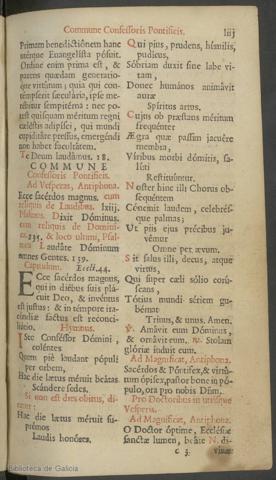 Commune Confessoris Pontificis. liij
Primam benedictiónem hanc
utérque Euangelista pósuit.
Ordine enim prima est, &
partus quædam generatio-
que virtútum; quia qui con-
témpserit sæculária, ipse me-
rébitur sempitérna: nec po-
test quisquam méritum regni
cæléstis adipísci, qui mundi
cupiditáte pressus, emergéndi
non habet facultátem.
Te Deum laudámus. 18.
COMMUNE
Confessoris Pontificis.
Ad Vesperas, Antiphona.
Ecce sacérdos magnus. cum
reliquis de Laudibus. lxiij.
Psalmus. Dixit Dóminus.
cum reliquis de Domini-
ca. 135. & loco ultimi, Psal-
mus Laudáte Dóminum
omnes Gentes. 139.
Capitulum. Eccli. 44.
Ecce sacérdos magnus,
qui in diébus suis plá-
cuit Deo, & invéntus
est justus: & in témpore ira-
cúndiæ factus est reconci-
liátio. Hymnus.
Iste Conféssor Dómini,
coléntes
Quem piè laudant pópuli
per orbem,
Hac die lætus méruit beátas
Scándere sedes.
Si non est dies obitus, di-
citur:
Hac die lætus méruit su-
prémos
Laudis honóres.
Qui pius, prudens, húmilis,
pudícus,
Sóbriam duxit sine labe vi-
tam,
Donec humános animávit
auræ
Spíritus artus.
Cujus ob præstans méritum
frequénter
Ægra quæ passim jacuére
membra,
Víribus morbi dómitis, sa-
lúti
Restituúntur.
Noster hinc illi Chorus ob-
sequéntem
Cóncinit laudem, celebrés-
que palmas;
Ut piis ejus précibus ju-
vémur
Omne per ævum.
Sit salus illi, decus, atque
virtus,
Qui super cæli sólio corúscans,
Tótius mundi sériem gu-
bérnat
Trinus, & unus. Amen.
℣. Amávit eum Dóminus,
& ornávit eum. ℟. Stolam
glóriæ índuit eum.
Ad Magnificat, Antiphona.
Sacérdos & Póntifex, & virtú-
tum ópifex, pastor bone in pó-
pulo, ora pro nobis Dñm.
Pro Doctoribus in utrisque
Vesperis.
Ad Magnificat, Antiphona.
O Doctor óptime, Ecclésiæ
sanctæ lumen, beáte N. di-
c 3. vínæ
Biblioteca de Galicia